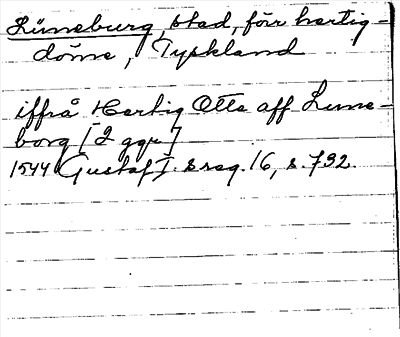 Lüneburg, stad, förr hertig-
döme, Tyskland
iffrå Hertig Otte aff Lune-
borg [2 ggr]
1544 Gustaf I:s reg. 16, s. 792.